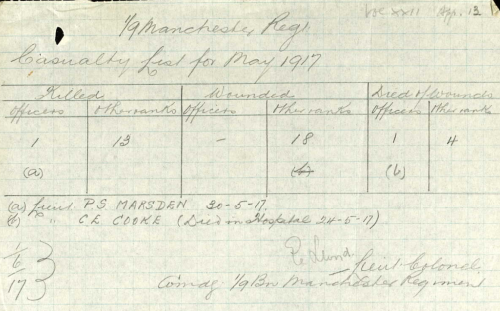 VOL XXII Ap. 13
1/9 Manchester Regt
Casualty list for May 1917
Killed Wounded Died of Wounds
Officers Other ranks Officers Other ranks Officers Other ranks
1 13 - 18 1 4
(a) (b) (b)
(a) Lieut P.S. MARSDEN 20-5-17.
(b) " C.E. COOKE (Died in Hospital 24-5-17)
1/6/17
Lieut Colonel
Comdg 1/9 Bn Manchester Regiment